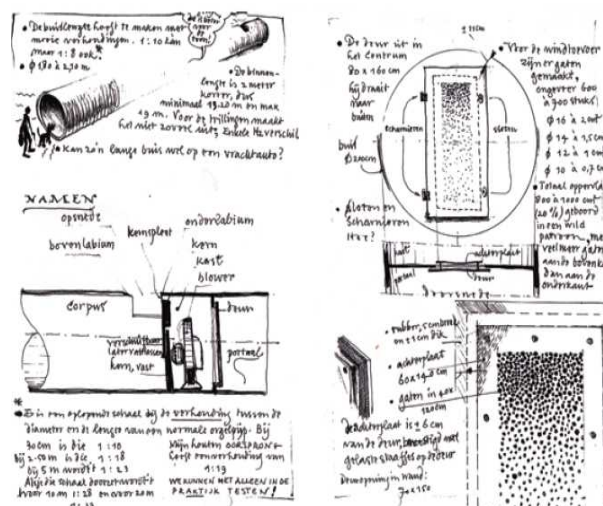 De buislengte hoeft te maken met
mooie verhoudingen. 1:10 kan
maar 1:8 ook.
De binnen-
lengte is 2 meter
korter, dus
minimaal
en max
19 m. Voor de trillingen maakt
het niet zoveel uit, enkele Hz verschil
Kan zo'n lange buis wel op een vrachtauto?
NAMEN
opsnede
kernspleet
onderlabium
bovenlabium
kern
kast
blower
corpus
deur
verschuifbaar
kern, vast
portaal
Er is een oplopende schaal bij de verhouding tussen de
diameter en de lengte van een normale orgelpijp. Bij
30cm is die 1:10
bij 2.50m is die 1:18
bij 5m wordt 1:23
Als je die schaal doorzet wordt
voor 10m 1:28 en voor 20m
Mijn houten OORSPRONG
heeft een verhouding van
1:19
WE KUNNEN HET ALLEEN IN DE
PRAKTIJK TESTEN!
De deur zit in
het centrum
80 x 160 cm
hij draait
naar
buiten
scharnieren
sloten
buis
Ø 210cm
sloten en
scharnieren
Voor de windtoevoer
zijn er gaten
gemaakt,
ongeveer 600
à 700 stuks
Ø 16 à 2 cm²
Ø 14 à 1,5 cm
Ø 12 à 1 cm
Ø 10 à 0,7
Totaal oppervl
800 à 1000 cm²
(20%) geboord
in een wild
patroon, met
veel meer gaten
aan de bovenkant
dan aan de
onderkant
kast
achterplaat
portaal
deur
Doorsnede
rubber, 5cm breed
en ±1cm dik
achterplaat
60 x 140 cm
gaten in 40 x
120cm
De achterplaat is ± 6 cm
van de deur, bevestigd met
gelaste staafjes op de deur
Deuropening in wand:
70 x 150